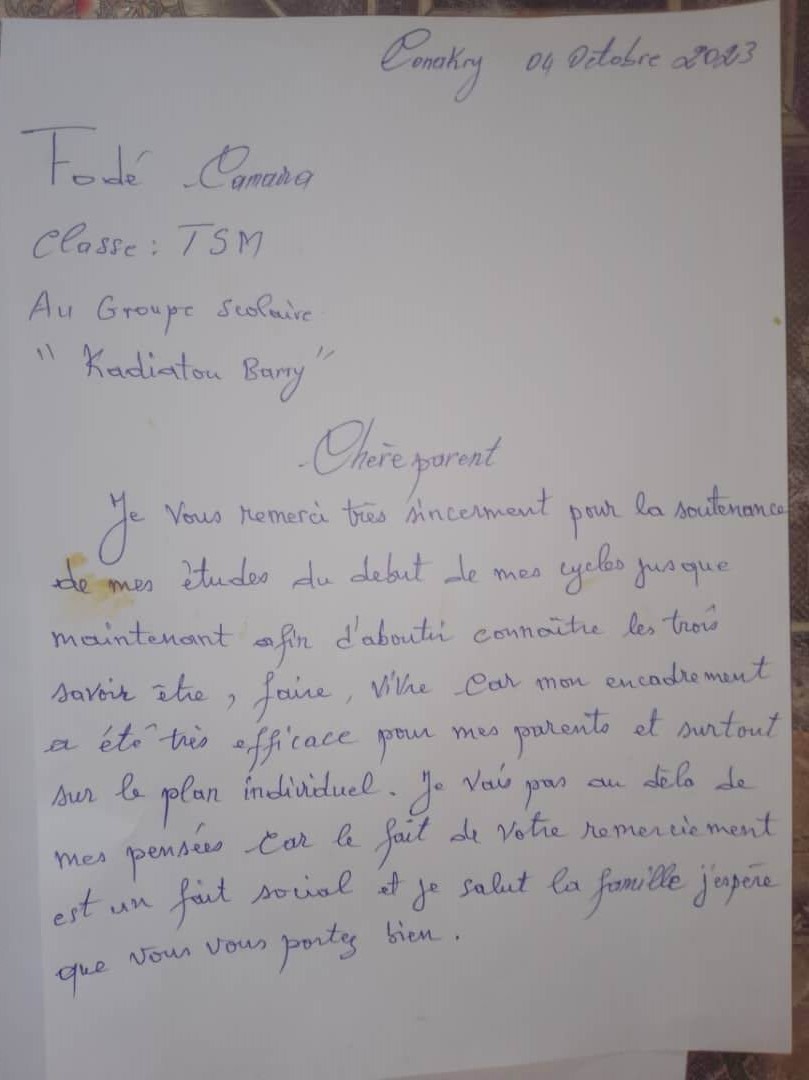 Conakry 04 Octobre 2023
Fodé Camara
Classe : TSM
Au Groupe scolaire
" Kadiatou Barry "
Chère parent
Je Vous remerci très sincerment pour la soutenance
de mes ètudes du debut de mes cycles jusque
maintenant afin d'aboutir connaître les trois
savoir être, faire, vivre Car mon encadrement
a été très efficace pour mes parents et surtout
sur le plan individuel. Je Vais pas au dèla de
mes pensées Car le fait de Votre remerciement
est un fait social et je salut la famille j'espère
que vous vous portez bien.